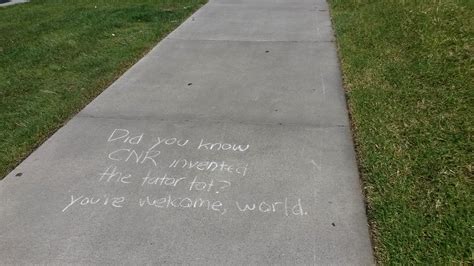 Did you know
CNR invented
the tator tot?
you're welcome, world.